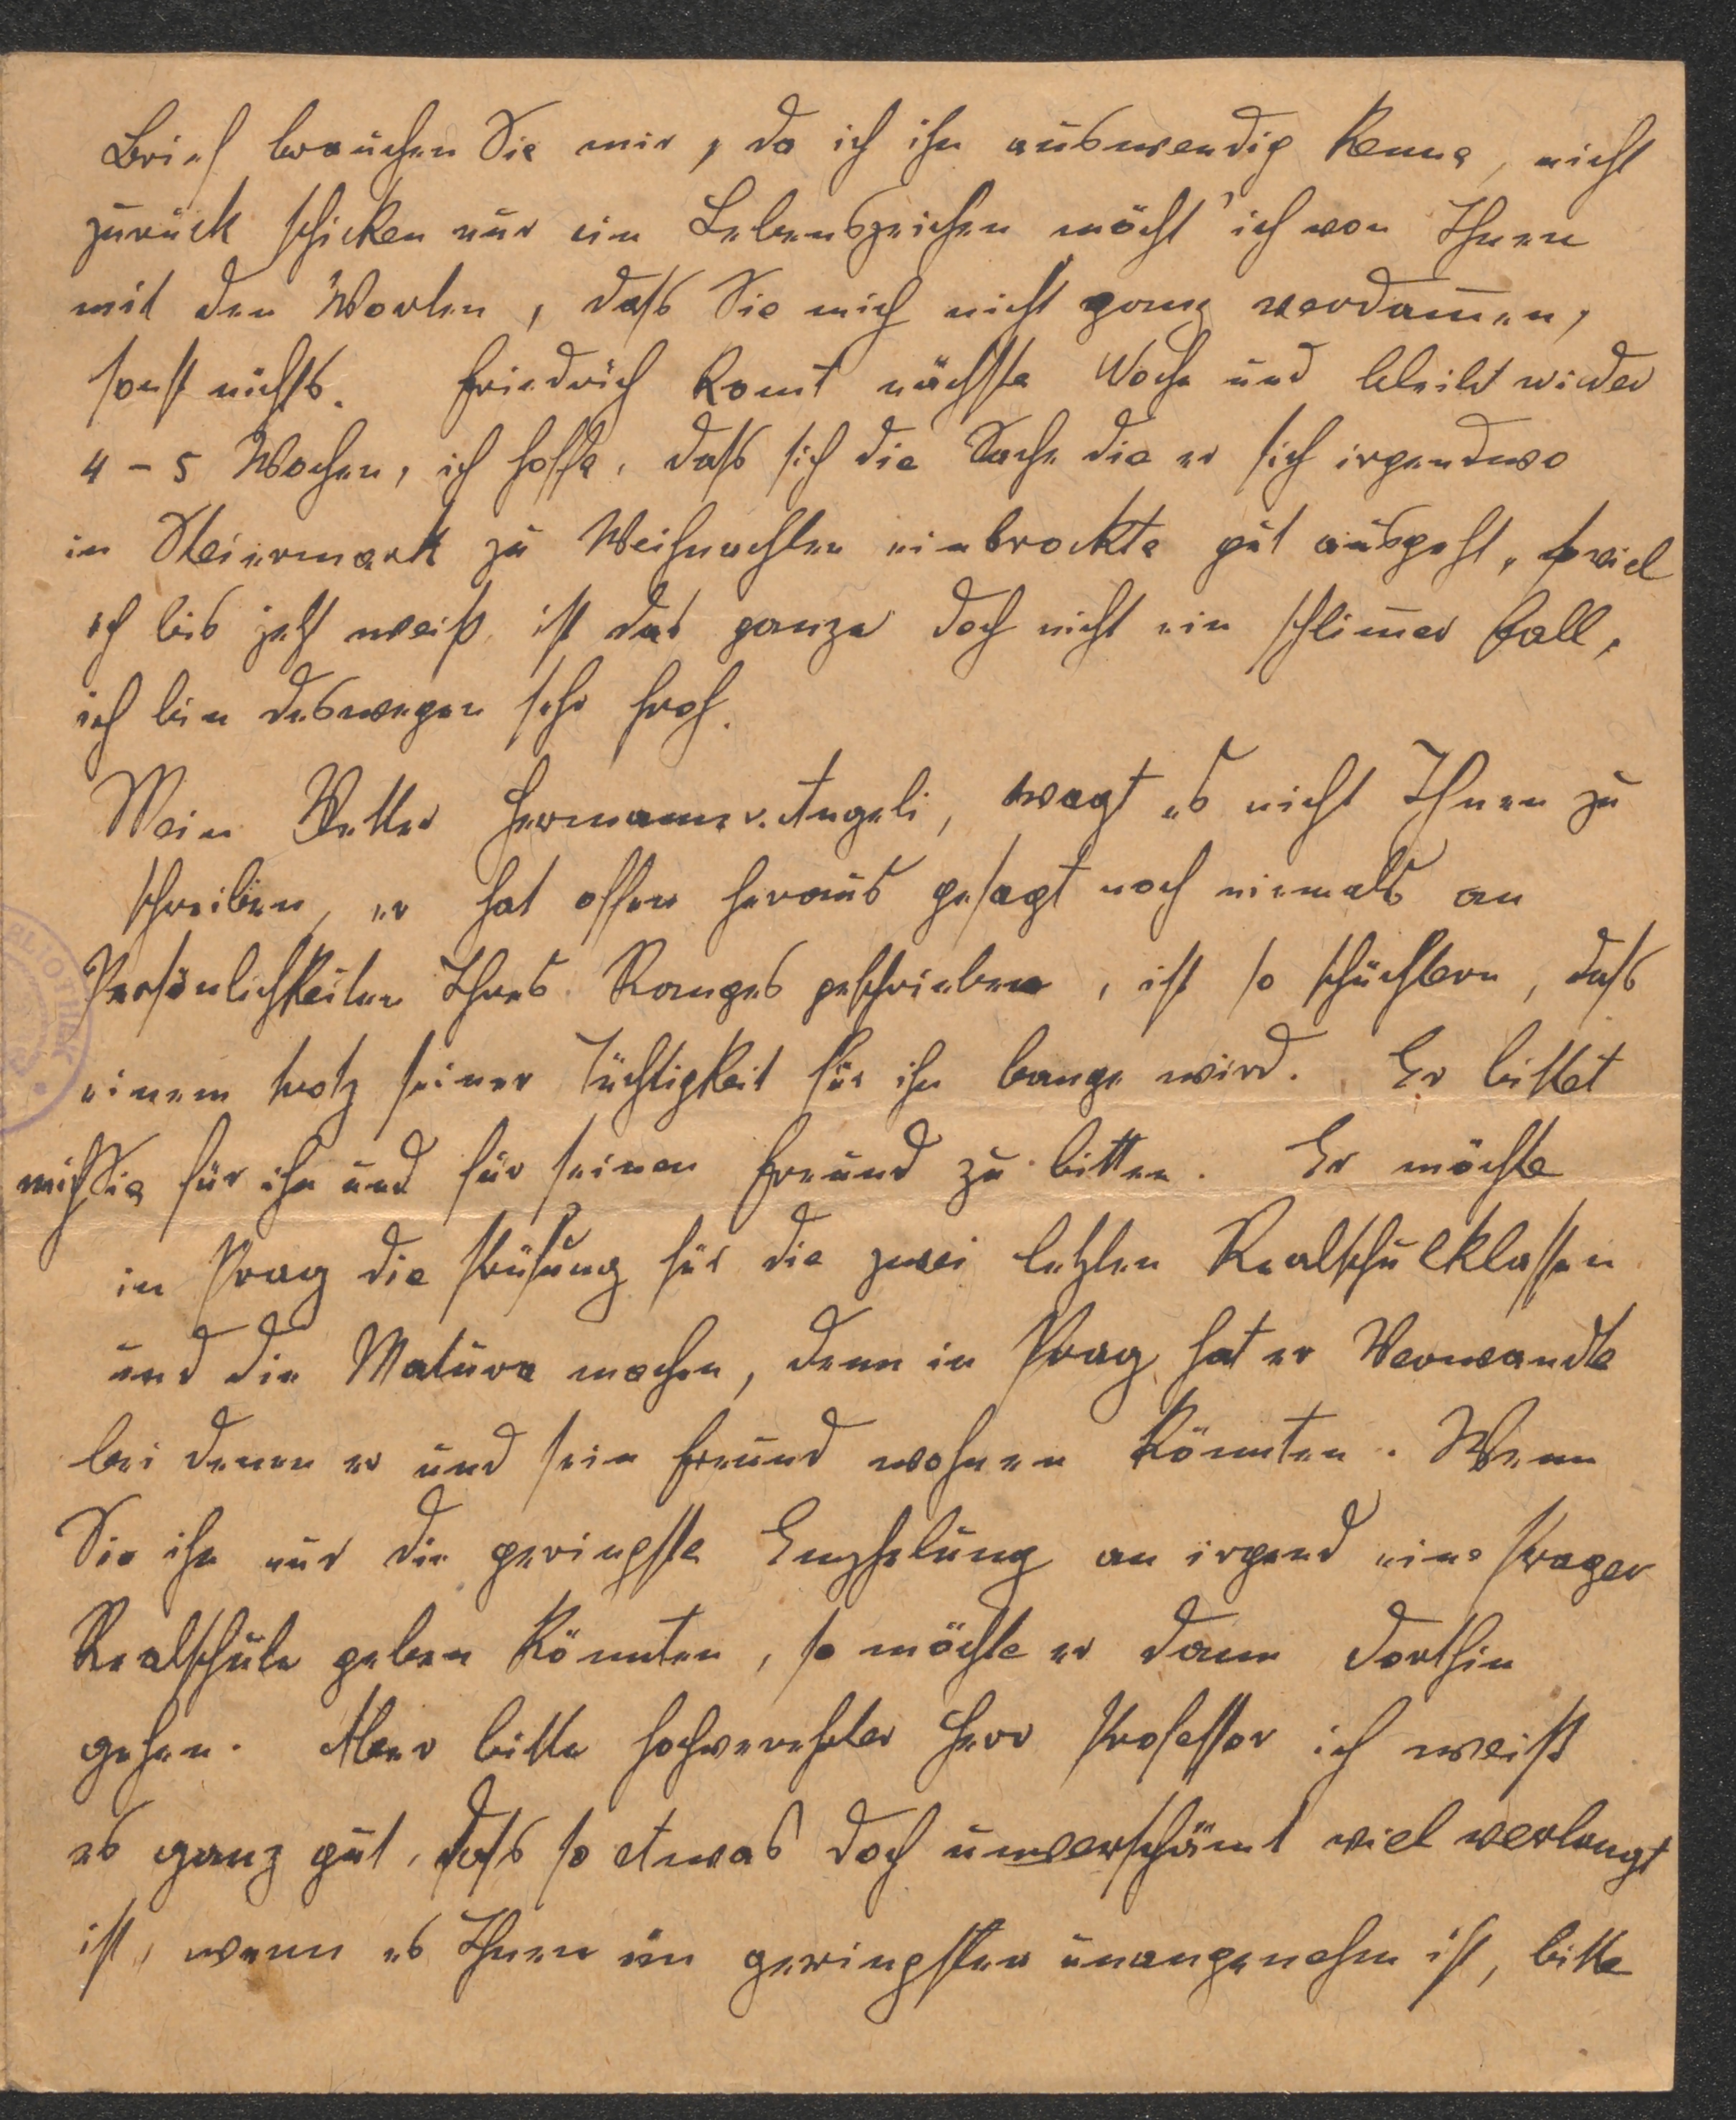 Brief brauchen Sie mir, da ich ihn auswendig kenne, nicht
zurück schicken nur ein Lebenszeichen möcht' ich von Ihnen
mit den Worten, dass Sie mich nicht ganz verdam̅en,
sonst nichts. Friedrich komt nächste Woche und bleibt wieder
4 - 5 Wochen, ich hoffe, dass sich die Sache die er sich irgendwo
in Steiermark zu Weihnachten einbrockte gut ausgeht, soviel
ich bis jetzt weiß ist das ganze doch nicht ein schlim̅er Fall,
ich bin deswegen sehr froh.
Mein Vetter Hermann v. Angeli, wagt es nicht Ihnen zu
schreiben, er hat offen heraus gesagt noch niemals an
Persönlichkeiten Ihres Ranges geschrieben, ist so schüchtern, dass
einem trotz seiner Tüchtigkeit für ihn bange wird. Er bittet
mich Sie für ihn und für seinen Freund zu bitten. Er möchte
in Prag die Prüfung für die zwei letzten Realschulklassen
und die Matura machen, denn in Prag hat er Verwandte
bei denen er und sein Freund wohnen könnten. Wenn
Sie ihn nur die geringste Empfelung an irgend eine Prager
Realschule geben könnten, so möchte er dann dorthin
gehen. Aber bitte hochverehrter Herr Professor ich weiß
es ganz gut, dass so etwas doch unverschämt viel verlangt
ist, wenn es Ihnen im geringsten unangenehm ist, bitte
BLIOTHEK